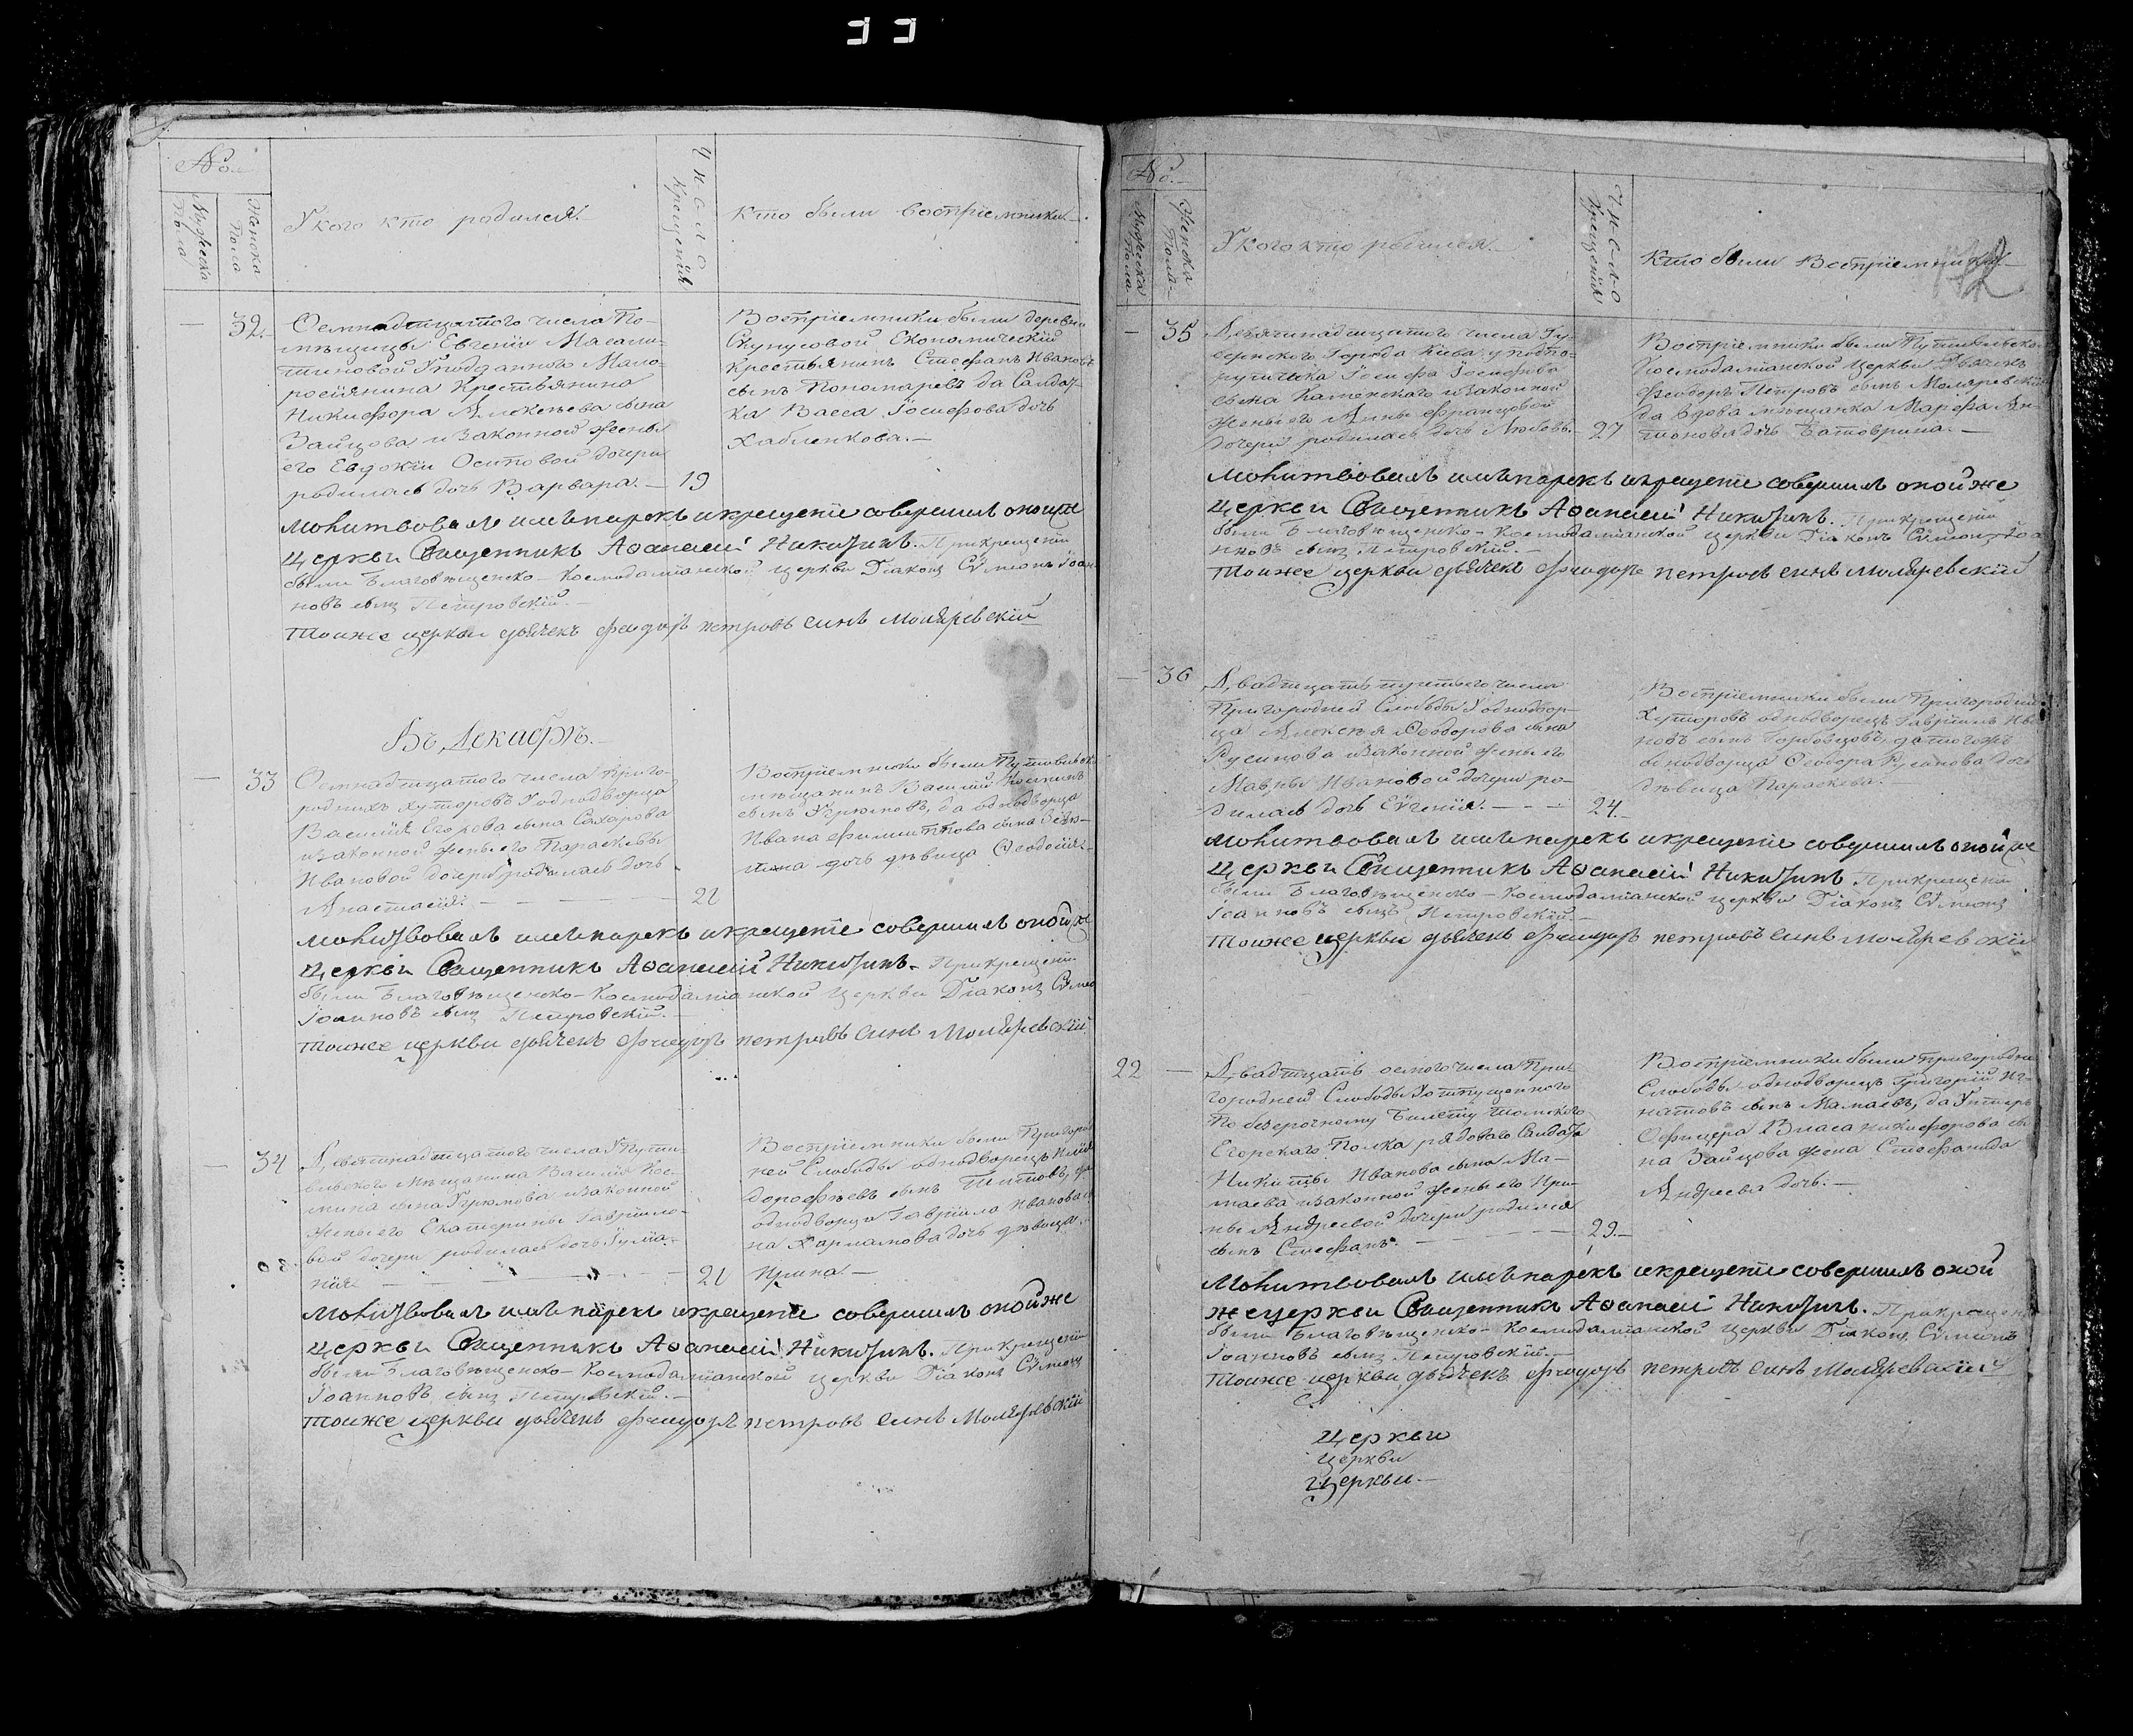 No.
Мужеска Пола
Женска Пола
У кого кто родился.
Число Крещенія
Кто были воспріемники.
32.
Осемнадцатого числа По-
мѣщицы Евгеніи Масало-
тиновой У подданного Мало-
россіянина Крестьянина
Никифора Алексѣева сына
Зайцова и Законной жены
его Евдокіи Осиповой дочери
родилась дочь Варвара. —
19
Воспріемники были деревни
Экономическій
Крестьянинъ Стефанъ Ивановъ
сынъ Пономаревъ да Салдат-
ка Васса Іосифова дочь
Хабленкова. —
Молитвовалъ имя нарекъ и крещеніе совершилъ оной же
Церкви Священникъ Аѳанасій Никитинъ. При крещеніи
были Благовѣщенско-Космодаміанской церкви Діаконъ Сѵмеонъ Іоан-
новъ сынъ Петровскій. —
Тоиже церкви дьячекъ Фиодоръ петровъ синъ Моляревскій
Въ Декабрѣ. —
33
Осемнадцатого числа Приго-
родныхъ хуторовъ У однодворца
Василія Егорова сына Сахарова
и Законной жены его Параскевы
Ивановой дочери родилась дочь
Анастасія. —
21
Воспріемники были Путивльскій
мѣщанинъ Василій Косминъ
сынъ Угрюмовъ, да однодворца
Ивана Филиппова сына
дочь дѣвица Ѳеодосія. —
Молитвовалъ имя нарекъ и крещеніе совершилъ оной же
Церкви Священникъ Аѳанасій Никитинъ. При крещеніи
были Благовѣщенско-Космодаміанской церкви Діаконъ Сѵмео
Іоанновъ сынъ Петровскій. —
Тоиже церкви дьячекъ Фиодоръ петровъ синъ Моляревскій
34
Девятнадцатого числа У Пути-
вльского Мѣщанина Василія Кос-
мина сына Угрюмова и Законной
жены его Екатерины Гавріило-
вой дочери родилась дочь Іуліа-
нія —
21
Воспріемники были Пригород
ней Слободы однодворецъ
Дорофѣевъ сынъ Титовъ, да
однодворца Гавріила Иванова сы-
на Харламова дочь дѣвица
Ирина. —
Молитвовалъ имя нарекъ и крещеніе совершилъ оной же
Церкви Священникъ Аѳанасій Никитинъ. При крещеніи
были Благовѣщенско-Космодаміанской церкви Діаконъ Сѵмеонъ
Іоанновъ сынъ Петровскій. —
Тоиже церкви дьячекъ Фиодоръ петровъ синъ Моляревскій
No. —
Мужеска Пола
Женска Пола
У кого кто родился. —
Число Крещенія
Кто были Воспріемники —
35
Девятнадцатого числа Гу-
бернского Города Кіева у подпо-
ручика Іосифа Іосифова
сына Каменского и Законной
жены его Анны Францовой
дочери родилась дочь Любовь.
27
Воспріемники были Путивльско
Космодаміанской Церкви Дьячекъ
Феодоръ Петровъ сынъ Моляревскій
да вдова мѣщанка Марфа Ан-
тонова дочь Батоврина. —
Молитвовалъ имя нарекъ и крещеніе совершилъ оной же
Церкви Священникъ Аѳанасій Никитинъ. При крещеніи
были Благовѣщенско-Космодаміанской церкви Діаконъ Сѵмеонъ Іоа
нновъ сынъ Петровскій. —
Тоиже церкви дьячекъ Фиодоръ петровъ синъ Моляревскій
36
Двадцать третьего числа
Пригородней Слободы У однодвор-
ца Алексѣя Ѳеодорова сына
Русинова и Законной жены его
Мавры Ивановой дочери ро-
дилась дочь Еѵгенія. —
24. —
Воспріемники были Пригородних
Хуторовъ однодворецъ Гавріилъ Ива
новъ сынъ Горбовцовъ, да того жъ
однодворца Ѳеодора Русинова дочь
дѣвица Параскева. —
Молитвовалъ имя нарекъ и крещеніе совершилъ оной же
Церкви Священникъ Аѳанасій Никитинъ При крещеніи
были Благовѣщенско-Космодаміанской церкви Діаконъ Сѵмеонъ
Іоанновъ сынъ Петровскій. —
Тоиже церкви дьячекъ Фиодоръ петровъ синъ Моляревскій
22
Двадцать осмого числа При-
городней Слободы У отпущенного
По безсрочному Билету Томского
Егерскаго Полка рядоваго Салдата
Никиты Иванова сына Ма-
маева и Законной жены его Ири-
ны Андреевой дочери родился
сынъ Стефанъ. —
29. —
Воспріемники были Пригородней
Слободы однодворецъ Григорій Иг-
натовъ сынъ Мамаевъ, да Унтеръ
Офицера Власа Никифорова сы
на Зайцова жена Стефанида
Андреева дочь. —
Молитвовалъ имя нарекъ и крещеніе совершилъ оной
же церкви Священникъ Аѳанасій Никитинъ. При крещеніи
были Благовѣщенско-Космодаміанской церкви Діаконъ Сѵмеонъ
Іоанновъ сынъ Петровскій. —
Тоиже церкви дьячекъ Фиодоръ петровъ синъ Моляревскій
Церкви
церкви
Церкви. —